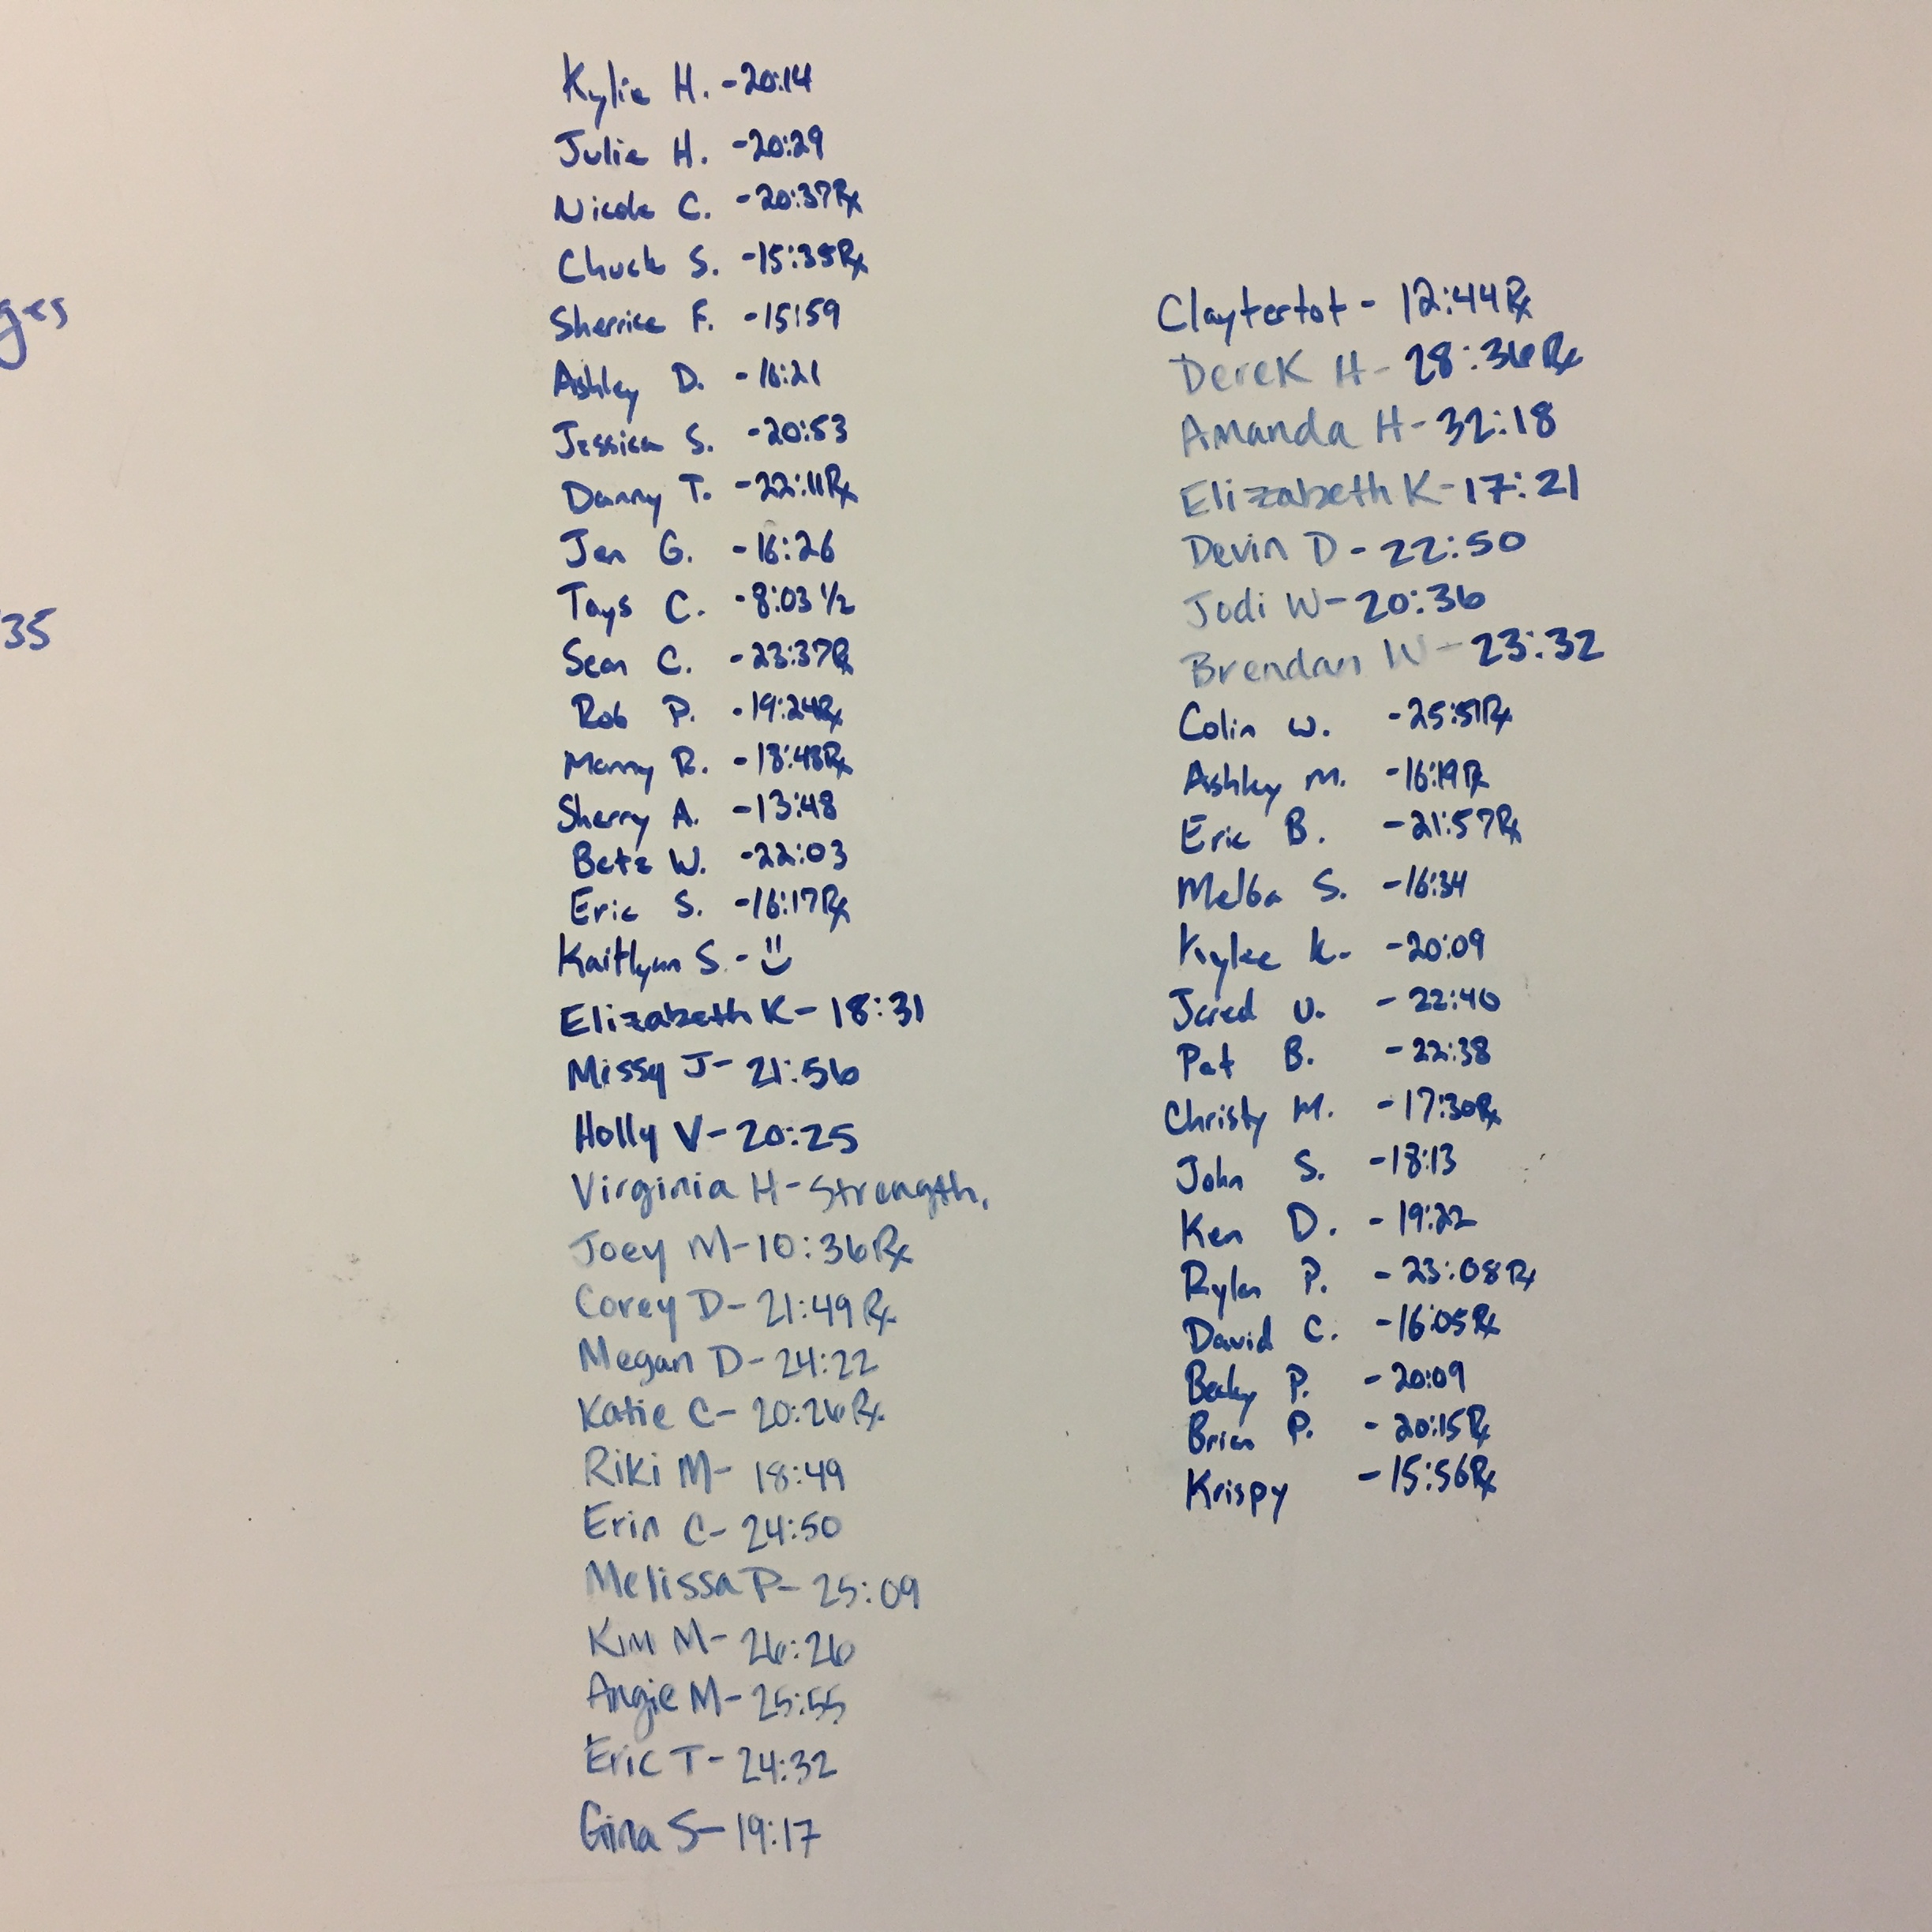 ges
35
Kylie H. - 20:14
Julie H. - 20:29
Nicole C. - 20:37 Rx
Chuck S. - 15:35 Rx
Sherrice F. - 15:59
Ashley D. - 16:21
Jessica S. - 20:53
Danny T. - 22:11 Rx
Jen G. - 16:26
Tays C. - 8:03 1/2
Sean C. - 23:37 Rx
Rob P. - 19:24 Rx
Manny R. - 18:48 Rx
Sherry A. - 13:48
Bete W. - 22:03
Eric S. - 16:17 Rx
Kaitlynn S. - :)
Elizabeth K - 18:31
Missy J - 21:56
Holly V - 20:25
Virginia H - Strength.
Joey M - 10:36 Rx
Corey D - 21:49 Rx
Megan D - 24:22
Katie C - 20:26 Rx
Riki M - 18:49
Erin C - 24:50
Melissa P - 25:09
Kim M - 26:26
Angie M - 25:55
Eric T - 24:32
Gina S - 19:17
Claytertot - 12:44 Rx
Derek H - 28:36 Rx
Amanda H - 32:18
Elizabeth K - 17:21
Devin D - 22:50
Jodi W - 20:36
Brendan W - 23:32
Colin W. - 25:51 Rx
Ashley M. - 16:19 Rx
Eric B. - 21:57 Rx
Melba S. - 16:34
Kylee K. - 20:09
Jared U. - 22:40
Pat B. - 22:38
Christy M. - 17:30 Rx
John S. - 18:13
Ken D. - 19:22
Rylan P. - 23:08 Rx
David C. - 16:05 Rx
Becky P. - 20:09
Brian P. - 20:15 Rx
Krispy - 15:56 Rx